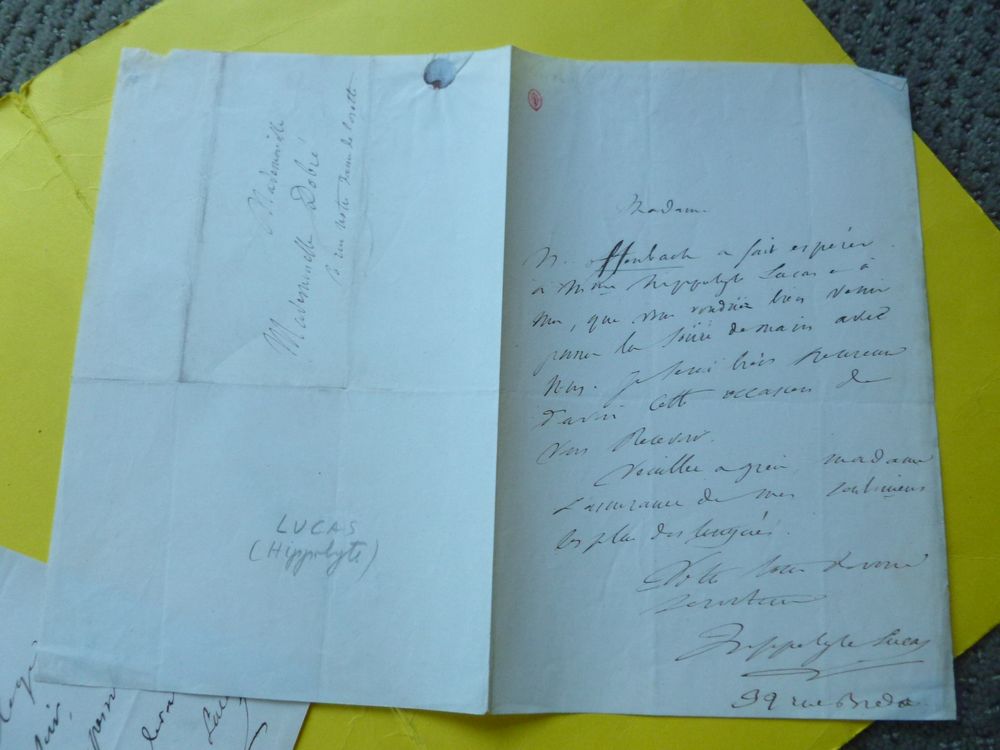 Mademoiselle
Mademoiselle Dobré
rue notre Dame de Lorette
LUCAS
(Hippolyte)
Madame
M. Offenbach a fait espérer
à Mme hippolyte Lucas et à
moi, que vous voudriez bien venir
passer la soirée demain avec
nous. je serai très heureux
d'avoir cette occasion de
vous recevoir.
Veuillez agréer, madame
l'assurance de mes sentimens
les plus distingués.
Votre tout dévoué
serviteur
hippolyte Lucas
39 rue Breda